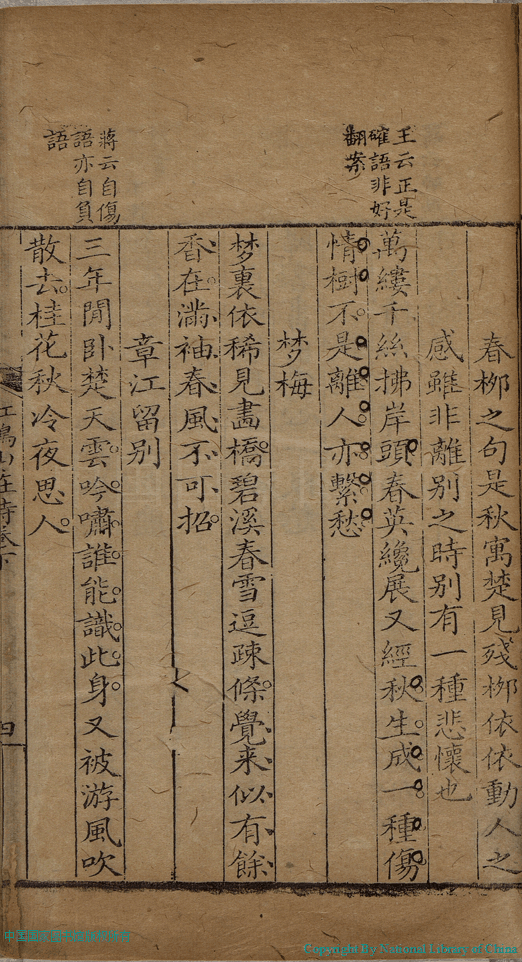 王云正是
確語非好
翻案
蔣云自傷
語亦自負
語
春栁之句是秋寓楚見殘栁依依動人之
感雖非離别之時别有一種悲懷也
萬縷千絲拂岸頭春英纔展又經秋生成一種傷
情樹不是離人亦繫愁
梦梅
梦裏依稀見畵橋碧溪春雪逗疎條覺来似有餘
香在滿袖春風不可招
章江留别
三年閒卧楚天雲吟嘯誰能識此身又被游風吹
散去桂花秋冷夜思人
山
詩卷下
四
Copyright By National Library of China